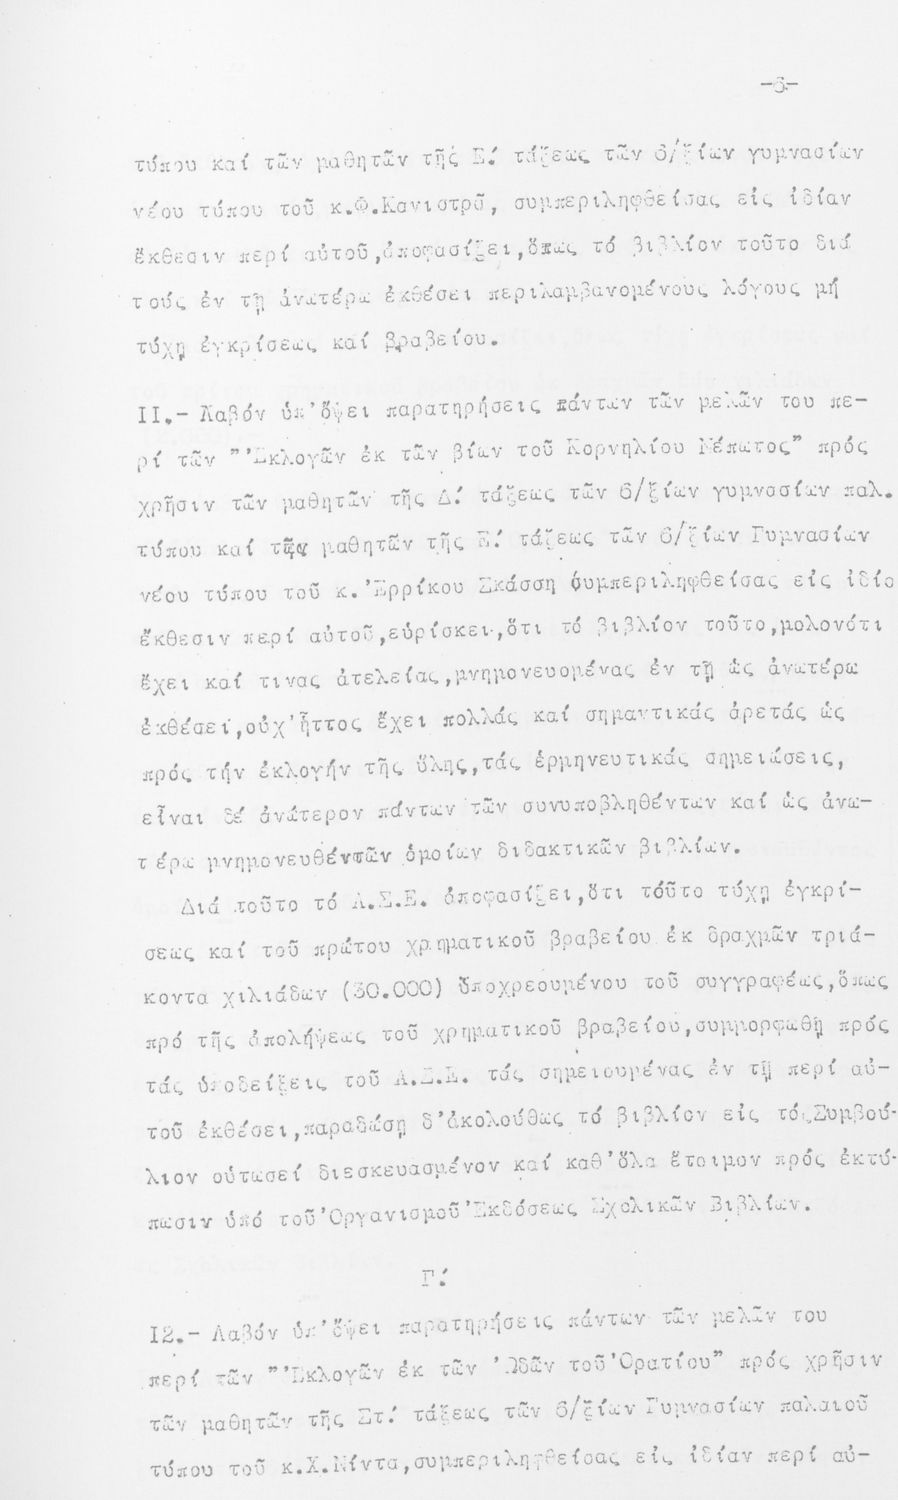 -6-
τύπου καί τῶν μαθητῶν τῆς Ε΄ τάξεως τῶν 6/ξίων γυμνασίων
νέου τύπου τοῦ κ.Φ.Κανιστρᾶ, συμπεριληφθείσας εἰς ἰδίαν
ἔκθεσιν περί αὐτοῦ,ἀποφασίζει,ὅπως τό βιβλίον τοῦτο διά
τούς ἐν τῇ ἀνωτέρω ἐκθέσει περιλαμβανομένους λόγους μή
τύχῃ ἐγκρίσεως καί βραβείου.
II.- Λαβόν ὑπ'ὄψει παρατηρήσεις πάντων τῶν μελῶν του πε-
ρί τῶν "Ἐκλογῶν ἐκ τῶν βίων τοῦ Κορνηλίου Νέπωτος" πρός
χρῆσιν τῶν μαθητῶν τῆς Δ΄ τάξεως τῶν 6/ξίων γυμνασίων παλ.
τύπου καί τῶν μαθητῶν τῆς Ε΄ τάξεως τῶν 6/ξίων Γυμνασίων
νέου τύπου τοῦ κ.Ἐρρίκου Σκάσση συμπεριληφθείσας εἰς ἰδίο
ἔκθεσιν περί αὐτοῦ,εὑρίσκει,ὅτι τό βιβλίον τοῦτο,μολονότι
ἔχει καί τινας ἀτελείας,μνημονευομένας ἐν τῇ ὡς ἀνωτέρω
ἐκθέσει,οὐχ'ἧττος ἔχει πολλάς καί σημαντικάς ἀρετάς ὡς
πρός τήν ἐκλογήν τῆς ὕλης,τάς ἑρμηνευτικάς σημειώσεις,
εἶναι δέ ἀνώτερον πάντων τῶν συνυποβληθέντων καί ὡς ἀνω-
τέρω μνημονευθέντῶν ὁμοίων διδακτικῶν βιβλίων.
Διά τοῦτο τό Α.Σ.Ε. ἀποφασίζει,ὅτι τόῦτο τύχῃ ἐγκρί-
σεως καί τοῦ πρώτου χρηματικοῦ βραβείου ἐκ δραχμῶν τριά-
κοντα χιλιάδων (30.000) ὑποχρεουμένου τοῦ συγγραφέως,ὅπως
πρό τῆς ἀπολήψεως τοῦ χρηματικοῦ βραβείου,συμμορφωθῇ πρός
τάς ὑποδείξεις τοῦ Α.Σ.Ε. τάς σημειουμένας ἐν τῇ περί αὐ-
τοῦ ἐκθέσει,παραδώσῃ δ'ἀκολούθως τό βιβλίον εἰς τό Συμβού-
λιον οὑτωσεί διεσκευασμένον καί καθ'ὅλα ἕτοιμον πρός ἐκτύ-
πωσιν ὑπό τοῦ Ὀργανισμοῦ Ἐκδόσεως Σχολικῶν Βιβλίων.
Γ΄
I2.- Λαβόν ὑπ'ὄψει παρατηρήσεις πάντων τῶν μελῶν του
περί τῶν "Ἐκλογῶν ἐκ τῶν Ὠδῶν τοῦ Ὁρατίου" πρός χρῆσιν
τῶν μαθητῶν τῆς Στ΄ τάξεως τῶν 6/ξίων Γυμνασίων παλαιοῦ
τύπου τοῦ κ.Χ.Νίντα,συμπεριληφθείσας εἰς ἰδίαν περί αὐ-